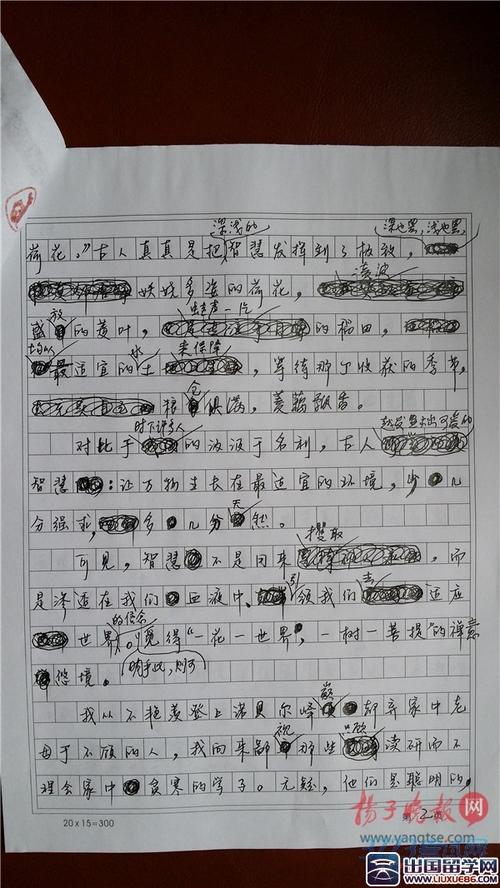 深浅的
深也罢，浅也罢，
荷花。”古人真真是把智慧发挥到了极致，
凌波
妖娆多姿的荷花，
蛙声一片
放
盛的菱叶，的稻田，
均以 水 来保障
最适宜的土，等待那个收获的季节，
仓
粮俱满，菱藕飘香。
时下许多人
对比于的汲汲于名利，古人
智慧：让万物生长在最适宜的环境，少几
天
分强求，多几分然。
攫取
可见，智慧不是因来，而
引 去
是渗透在我们血液中，领我们适应
的信念
世界。见得“一花一世界，一树一菩提”的禅意
明乎此，则可
悠境。
巅
我从不艳羡登上诺贝尔峰却弃家中老
视 只顾
母于不顾的人，我向来鄙那些读研而不
理会家中贫寒的学子。无疑，他们是聪明的，
20×15=300
第2页
扬子晚报网
www.yangtse.com
出国留学网
www.liuxue86.com